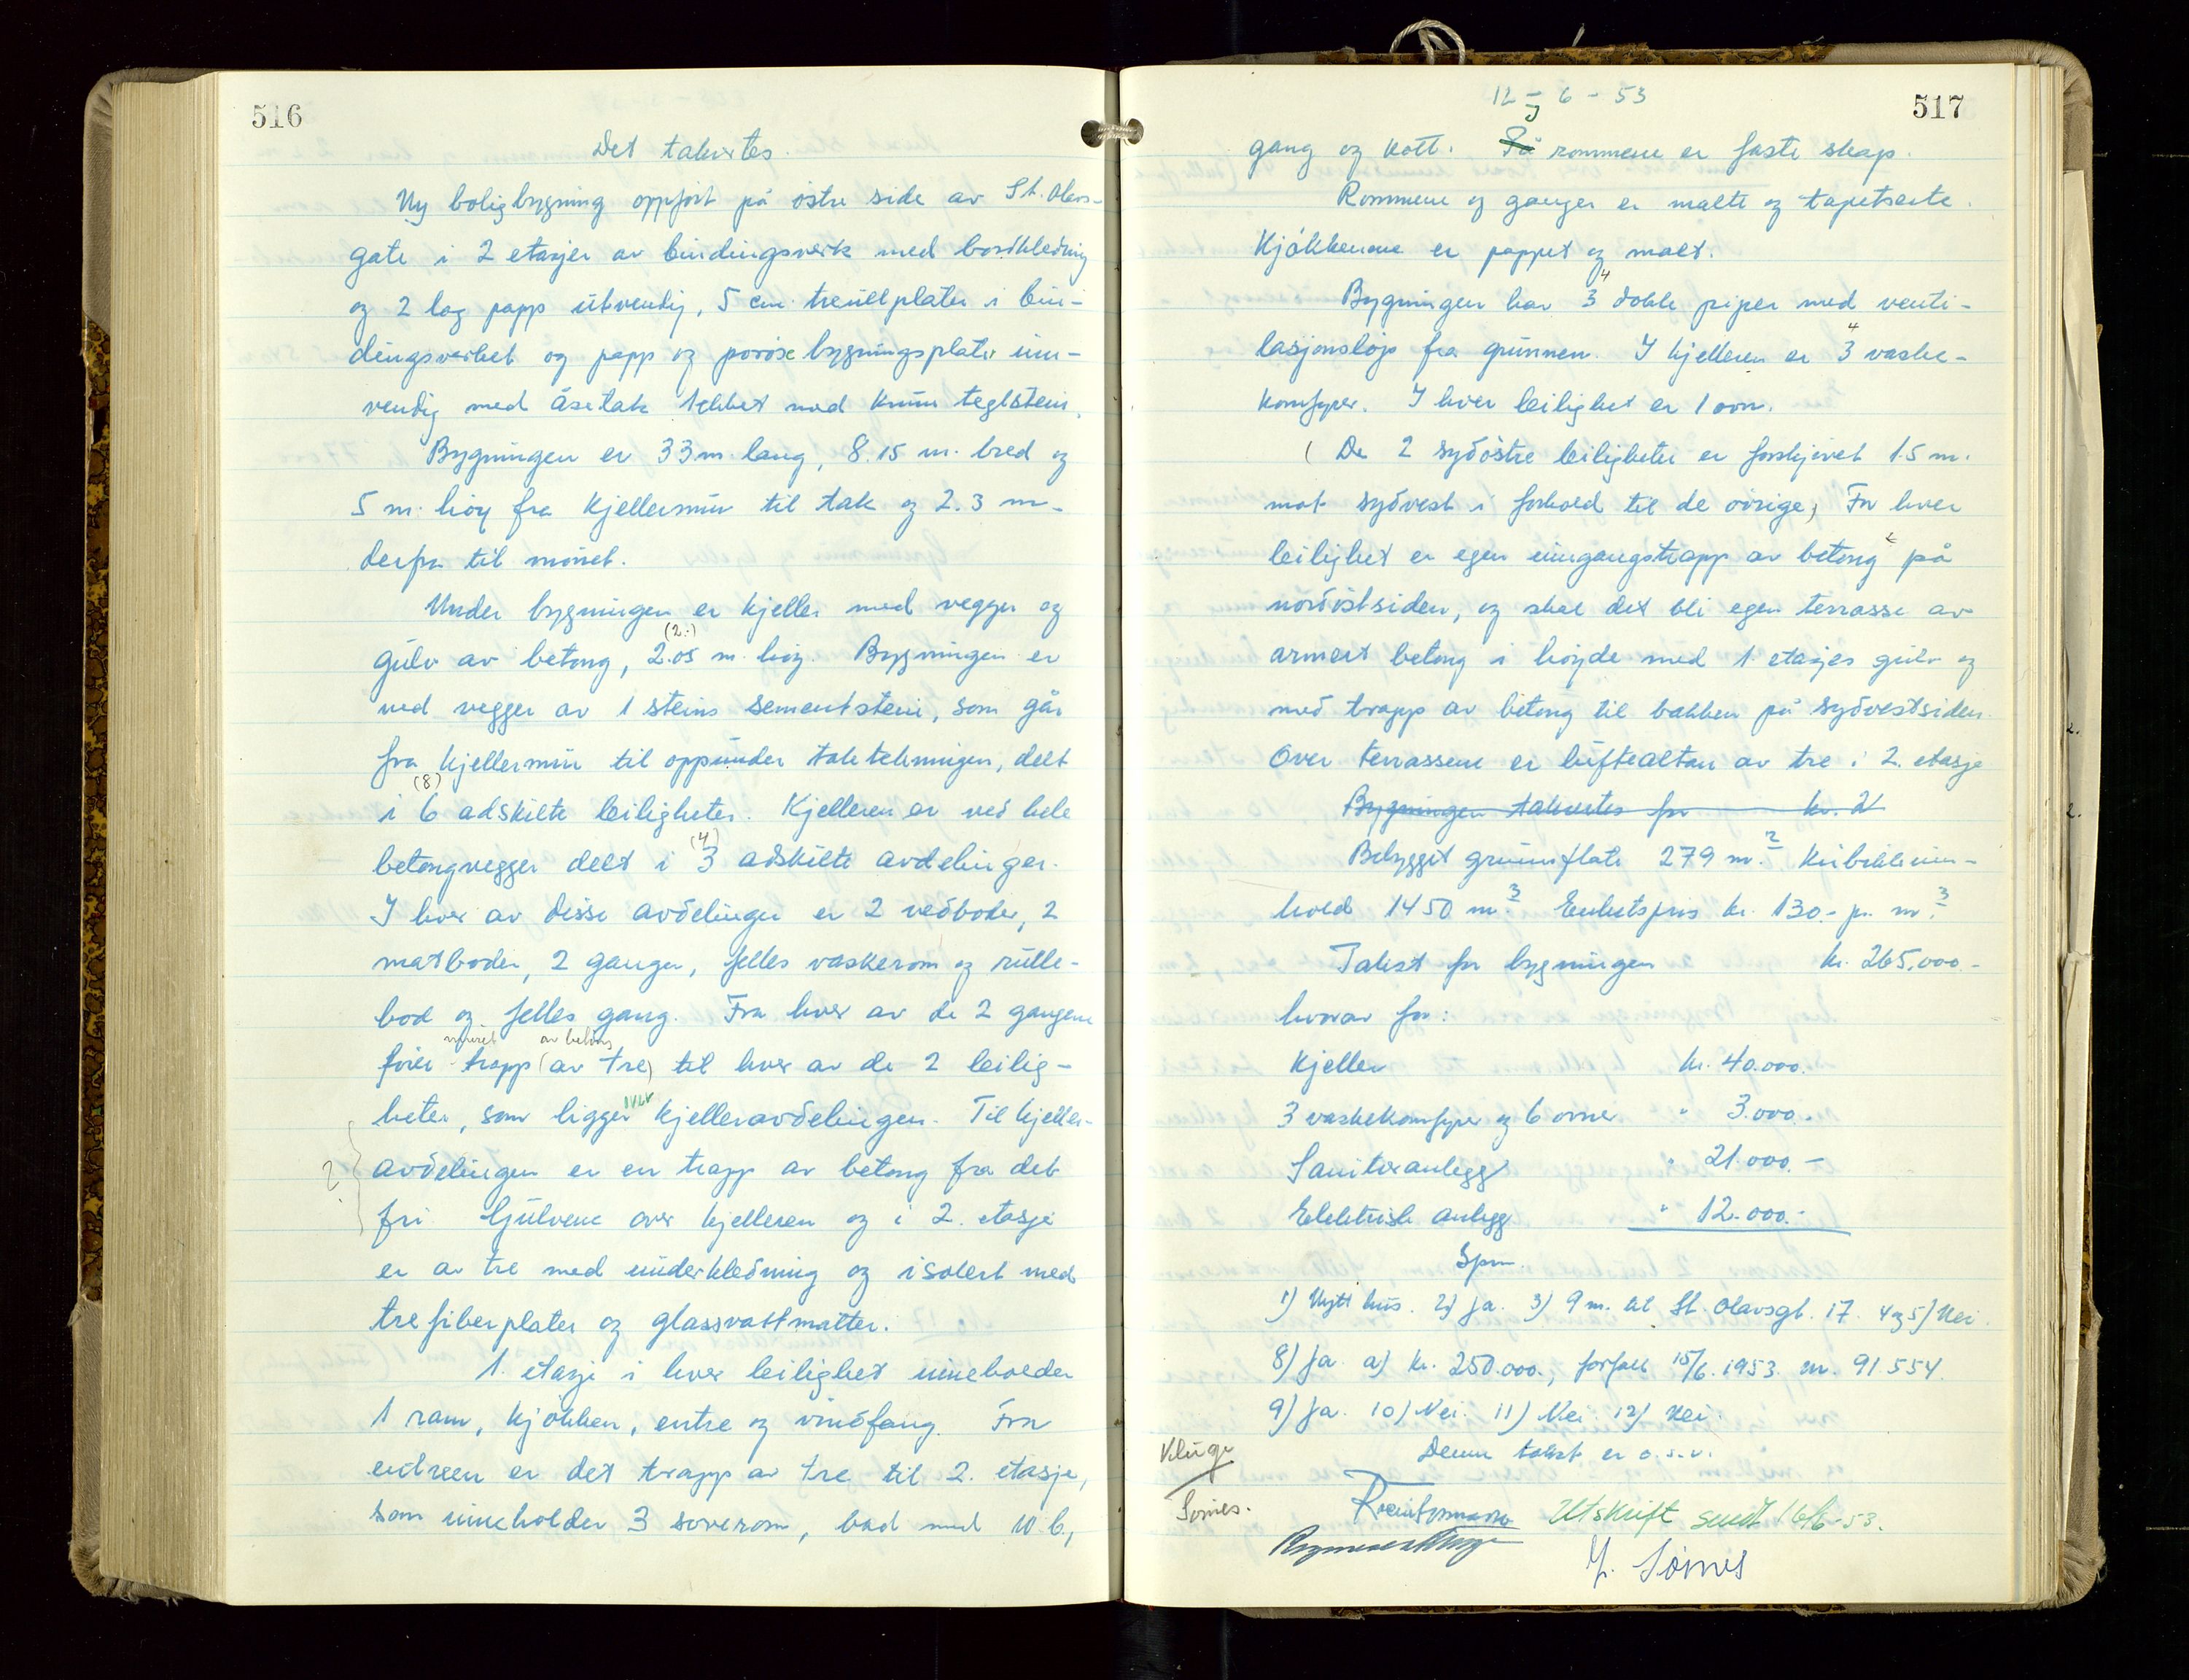 516
Det takertes.
Ny boligbygning oppført på østre side av St. Olavs-
gate i 2 etasjer av bindingsverk med bordkledning
og 2 lag papp utvendig, 5 cm. treullplater i bin-
dingsverket og papp og porøse bygningsplater inn-
vendig med åsetak tekket med krum teglstein.
Bygningen er 33 m. lang, 8.15 m. bred og
5 m. høy fra kjellermur til tak og 2.3 m.
derfra til mønet.
Under bygningen er kjeller med vegger og
(2.-)
gulv av betong, 2.05 m. høy. Bygningen er
ved vegger av 1 steins sementstein, som går
fra kjellermur til oppunder taktekningen, delt
(8)
i 6 adskilte leiligheter. Kjelleren er ved hele
(4)
betongvegger delt i 3 adskilte avdelinger.
I hver av disse avdelinger er 2 vedboder, 2
matboder, 2 ganger, felles vaskerom og rulle-
bod og felles gang. Fra hver av de 2 gangene
muret av betong
fører trapp (av tre) til hver av de 2 leilig-
over
heter, som ligger kjelleravdelingen. Til kjeller-
? avdelingen er en trapp av betong fra det
fri. Gulvene over kjelleren og i 2. etasje
er av tre med underkledning og isolert med
trefiberplater og glassvattmatter.
1. etasje i hver leilighet inneholder
1 rom, kjøkken, entre og vindfang. Fra
entreen er det trapp av tre til 2. etasje,
som inneholder 3 soverom, bad med w.c.,
517
12 - 6 - 53
I
gang og kott. På rommene er faste skap.
Rommene og ganger er malte og tapetserte.
Kjøkkenene er pappet og malt.
4
Bygningen har 3 doble piper med venti-
4
lasjonsløp fra grunnen. I kjelleren er 3 vaske-
komfyrer. I hver leilighet er 1 ovn.
( De 2 sydøstre leiligheter er forskjøvet 1.5 m.
mot sydvest i forhold til de øvrige) For hver
leilighet er egen inngangstrapp av betong på
nordøstsiden, og skal det bli egen terrasse av
armert betong i høyde med 1. etasjes gulv og
med trapp av betong til bakken på sydvestsiden.
Over terrassene er luftealtan av tre i 2. etasje
Bygningen takertes for kr. 2
Bebygget grunnflate 279 m.2 Kubikkinn-
hold 1450 m.3 Enhetspris kr. 130.- pr. m.3
Takst for bygningen kr. 265.000.-
hvorav for:
Kjeller kr. 40.000.-
3 vaskekomfyrer og 6 ovner " 3.000.-
Sanitæranlegg " 21.000.-
Elektrisk anlegg " 12.000.-
Spm.
1) Nytt hus. 2) Ja. 3) 9 m. til St. Olavsgt. 17. 4 og 5) Nei.
8) Ja. a) kr. 250.000.-, forfall 15/6. 1953. nr. 91.554.
9) Ja. 10) Nei. 11) Nei. 12) Nei.
Kluge
Denne takst er o.s.v.
Sømes.
Utskrift sendt 16/6-53.
Y. Sømes